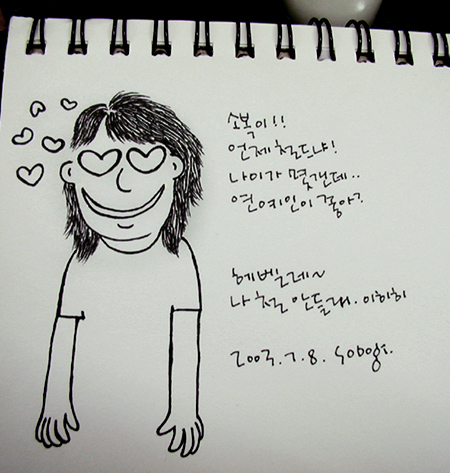 소복이!!
언제 철드냐!
나이가 몇갠데..
연예인이 좋아?
헤벨레~
나 철 안들래. 이히히
2005.7.8. sobogi.